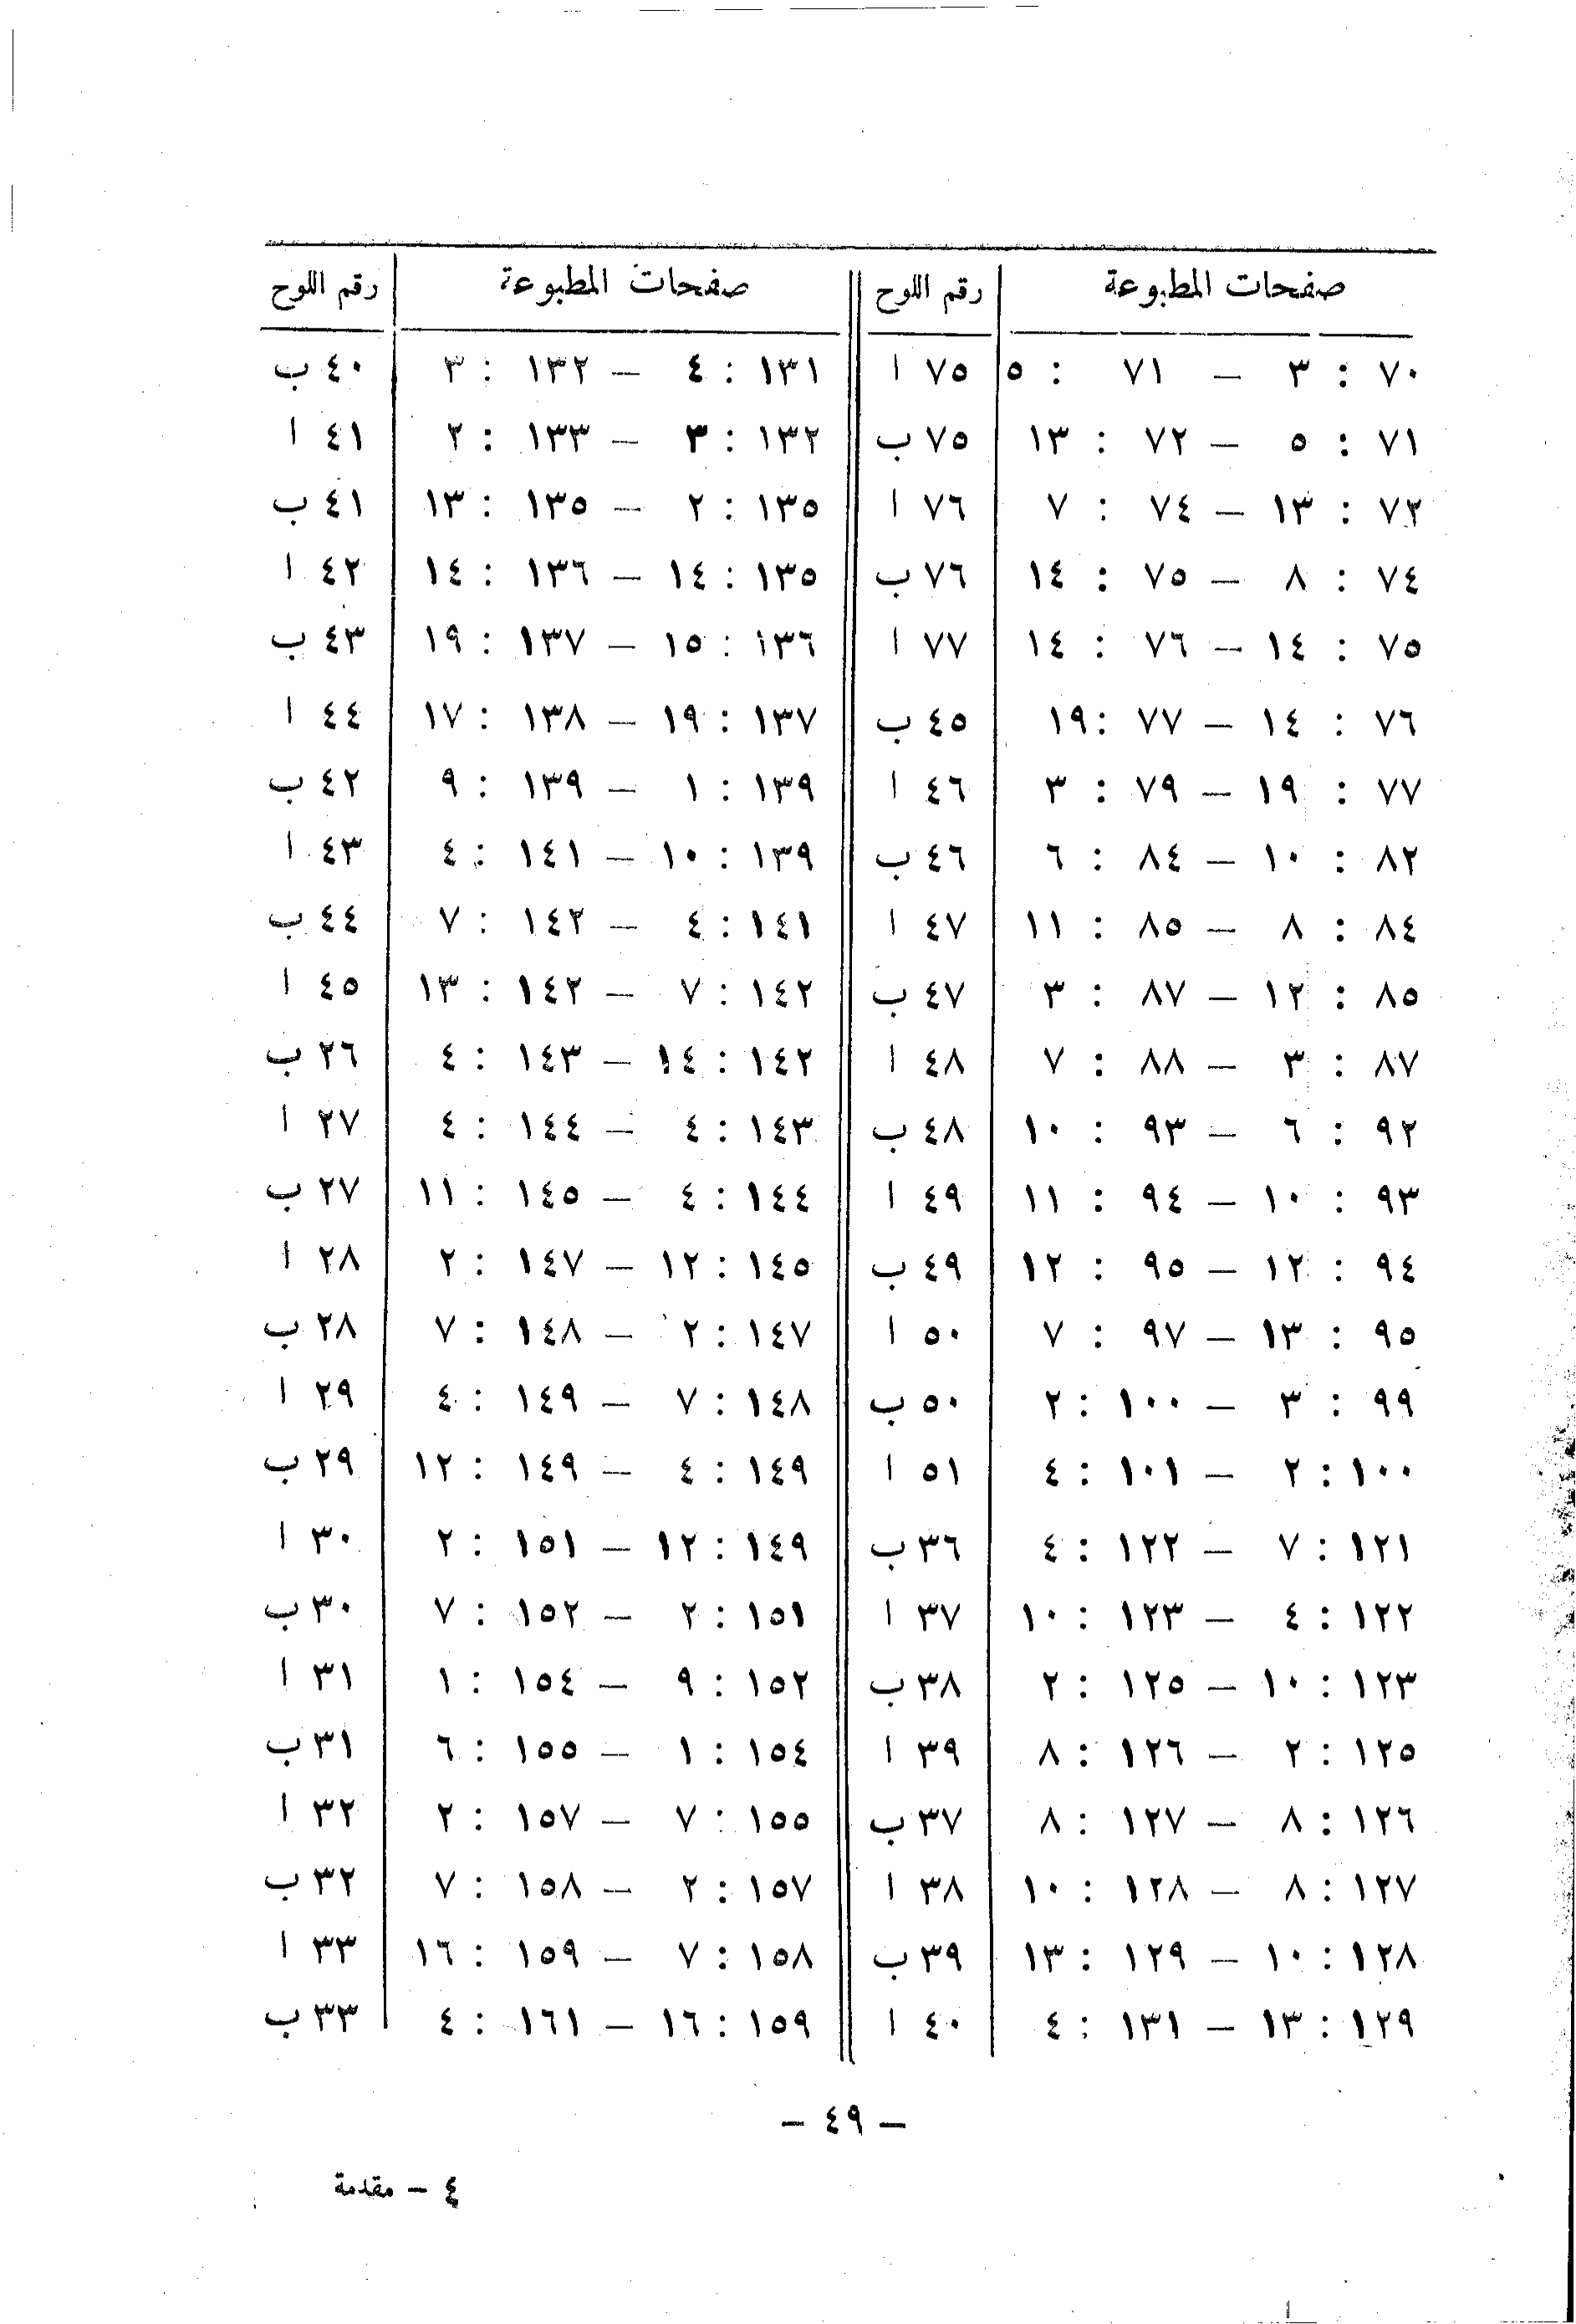 صفحات المطبوعة رقم اللوح صفحات المطبوعة رقم اللوح
٧٠ : ٣ – ٧١ : ٥ ٧٥ ا ١٣١ : ٤ – ١٣٢ : ٣ ٤٠ ب
٧١ : ٥ – ٧٢ : ١٣ ٧٥ ب ١٣٢ : ٣ – ١٣٣ : ٢ ٤١ ا
٧٢ : ١٣ – ٧٤ : ٧ ٧٦ ا ١٣٥ : ٢ – ١٣٥ : ١٣ ٤١ ب
٧٤ : ٨ – ٧٥ : ١٤ ٧٦ ب ١٣٥ : ١٤ – ١٣٦ : ١٤ ٤٢ ا
٧٥ : ١٤ – ٧٦ : ١٤ ٧٧ ا ١٣٦ : ١٥ – ١٣٧ : ١٩ ٤٣ ب
٧٦ : ١٤ – ٧٧ : ١٩ ٤٥ ب ١٣٧ : ١٩ – ١٣٨ : ١٧ ٤٤ ا
٧٧ : ١٩ – ٧٩ : ٣ ٤٦ ا ١٣٩ : ١ – ١٣٩ : ٩ ٤٢ ب
٨٢ : ١٠ – ٨٤ : ٦ ٤٦ ب ١٣٩ : ١٠ – ١٤١ : ٤ ٤٣ ا
٨٤ : ٨ – ٨٥ : ١١ ٤٧ ا ١٤١ : ٤ – ١٤٢ : ٧ ٤٤ ب
٨٥ : ١٢ – ٨٧ : ٣ ٤٧ ب ١٤٢ : ٧ – ١٤٢ : ١٣ ٤٥ ا
٨٧ : ٣ – ٨٨ : ٧ ٤٨ ا ١٤٢ : ١٤ – ١٤٣ : ٤ ٢٦ ب
٩٢ : ٦ – ٩٣ : ١٠ ٤٨ ب ١٤٣ : ٤ – ١٤٤ : ٤ ٢٧ ا
٩٣ : ١٠ – ٩٤ : ١١ ٤٩ ا ١٤٤ : ٤ – ١٤٥ : ١١ ٢٧ ب
٩٤ : ١٢ – ٩٥ : ١٢ ٤٩ ب ١٤٥ : ١٢ – ١٤٧ : ٢ ٢٨ ا
٩٥ : ١٣ – ٩٧ : ٧ ٥٠ ا ١٤٧ : ٢ – ١٤٨ : ٧ ٢٨ ب
٩٩ : ٣ – ١٠٠ : ٢ ٥٠ ب ١٤٨ : ٧ – ١٤٩ : ٤ ٢٩ ا
١٠٠ : ٢ – ١٠١ : ٤ ٥١ ا ١٤٩ : ٤ – ١٤٩ : ١٢ ٢٩ ب
١٢١ : ٧ – ١٢٢ : ٤ ٣٦ ب ١٤٩ : ١٢ – ١٥١ : ٢ ٣٠ ا
١٢٢ : ٤ – ١٢٣ : ١٠ ٣٧ ا ١٥١ : ٢ – ١٥٢ : ٧ ٣٠ ب
١٢٣ : ١٠ – ١٢٥ : ٢ ٣٨ ب ١٥٢ : ٩ – ١٥٤ : ١ ٣١ ا
١٢٥ : ٢ – ١٢٦ : ٨ ٣٩ ا ١٥٤ : ١ – ١٥٥ : ٦ ٣١ ب
١٢٦ : ٨ – ١٢٧ : ٨ ٣٧ ب ١٥٥ : ٧ – ١٥٧ : ٢ ٣٢ ا
١٢٧ : ٨ – ١٢٨ : ١٠ ٣٨ ا ١٥٧ : ٢ – ١٥٨ : ٧ ٣٢ ب
١٢٨ : ١٠ – ١٢٩ : ١٣ ٣٩ ب ١٥٨ : ٧ – ١٥٩ : ١٦ ٣٣ ا
١٢٩ : ١٣ – ١٣١ : ٤ ٤٠ ا ١٥٩ : ١٦ – ١٦١ : ٤ ٣٣ ب
– ٤٩ –
٤ – مقدمة